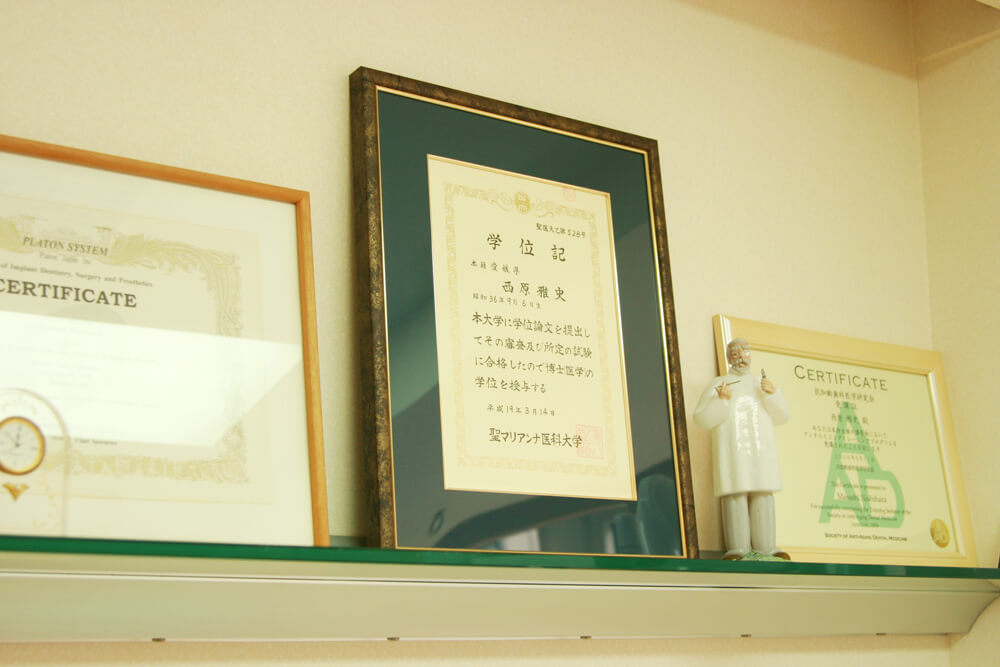 PLATON SYSTEM
Platon Japan Inc
of Implant Dentistry, Surgery and Prosthetics
CERTIFICATE
Chief Instructor
聖医大乙第528号
学位記
本籍愛媛県
西原雅史
昭和36年9月6日生
本大学に学位論文を提出し
てその審査及び所定の試験
に合格したので博士医学の
学位を授与する
平成19年3月14日
聖マリアンナ医科大学
CERTIFICATE
抗加齢歯科医学研究会
受講証
西原 雅史 殿
This Certificate is presented to
Masashi Nishihara
For successfully completing the Training Seminar of the
Society of Anti-Aging Dental Medicine
SOCIETY OF ANTI-AGING DENTAL MEDICINE